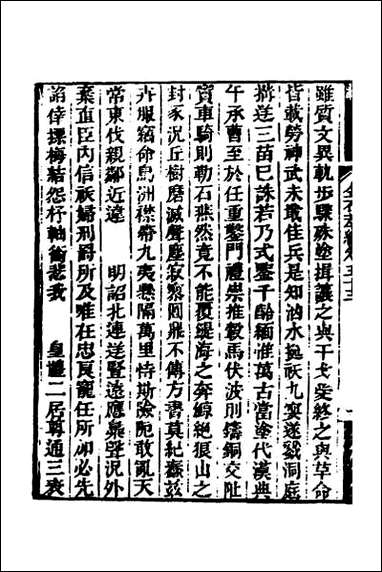 金石萃編卷五十三
雖質文異軌步驟殊塗揖讓之與干戈受終之與革命
皆載勞神武未戢佳兵是知汭水挻祅九嬰遂戮洞庭
搆逆三苗已誅若乃式鑒千齡緬惟萬古當塗代漢典
午承曹至於任重鑿門禮崇推轂馬伏波則鑄銅交阯
竇車騎則勒石燕然竟不能覆鯷海之奔鯨絕狼山之
封豕況丘樹磨滅聲塵寂寥圓鼎不傳方書莫紀蠢茲
卉服竊命島洲襟帶九夷懸隔萬里恃斯險阨敢亂天
常東伐親鄰近違　明詔北連逆豎遠應梟聲況外
棄直臣內信祅婦刑罰所及唯在忠良寵任所加必先
諂倖摽梅結怨杼軸銜悲我　皇體二居尊通三表